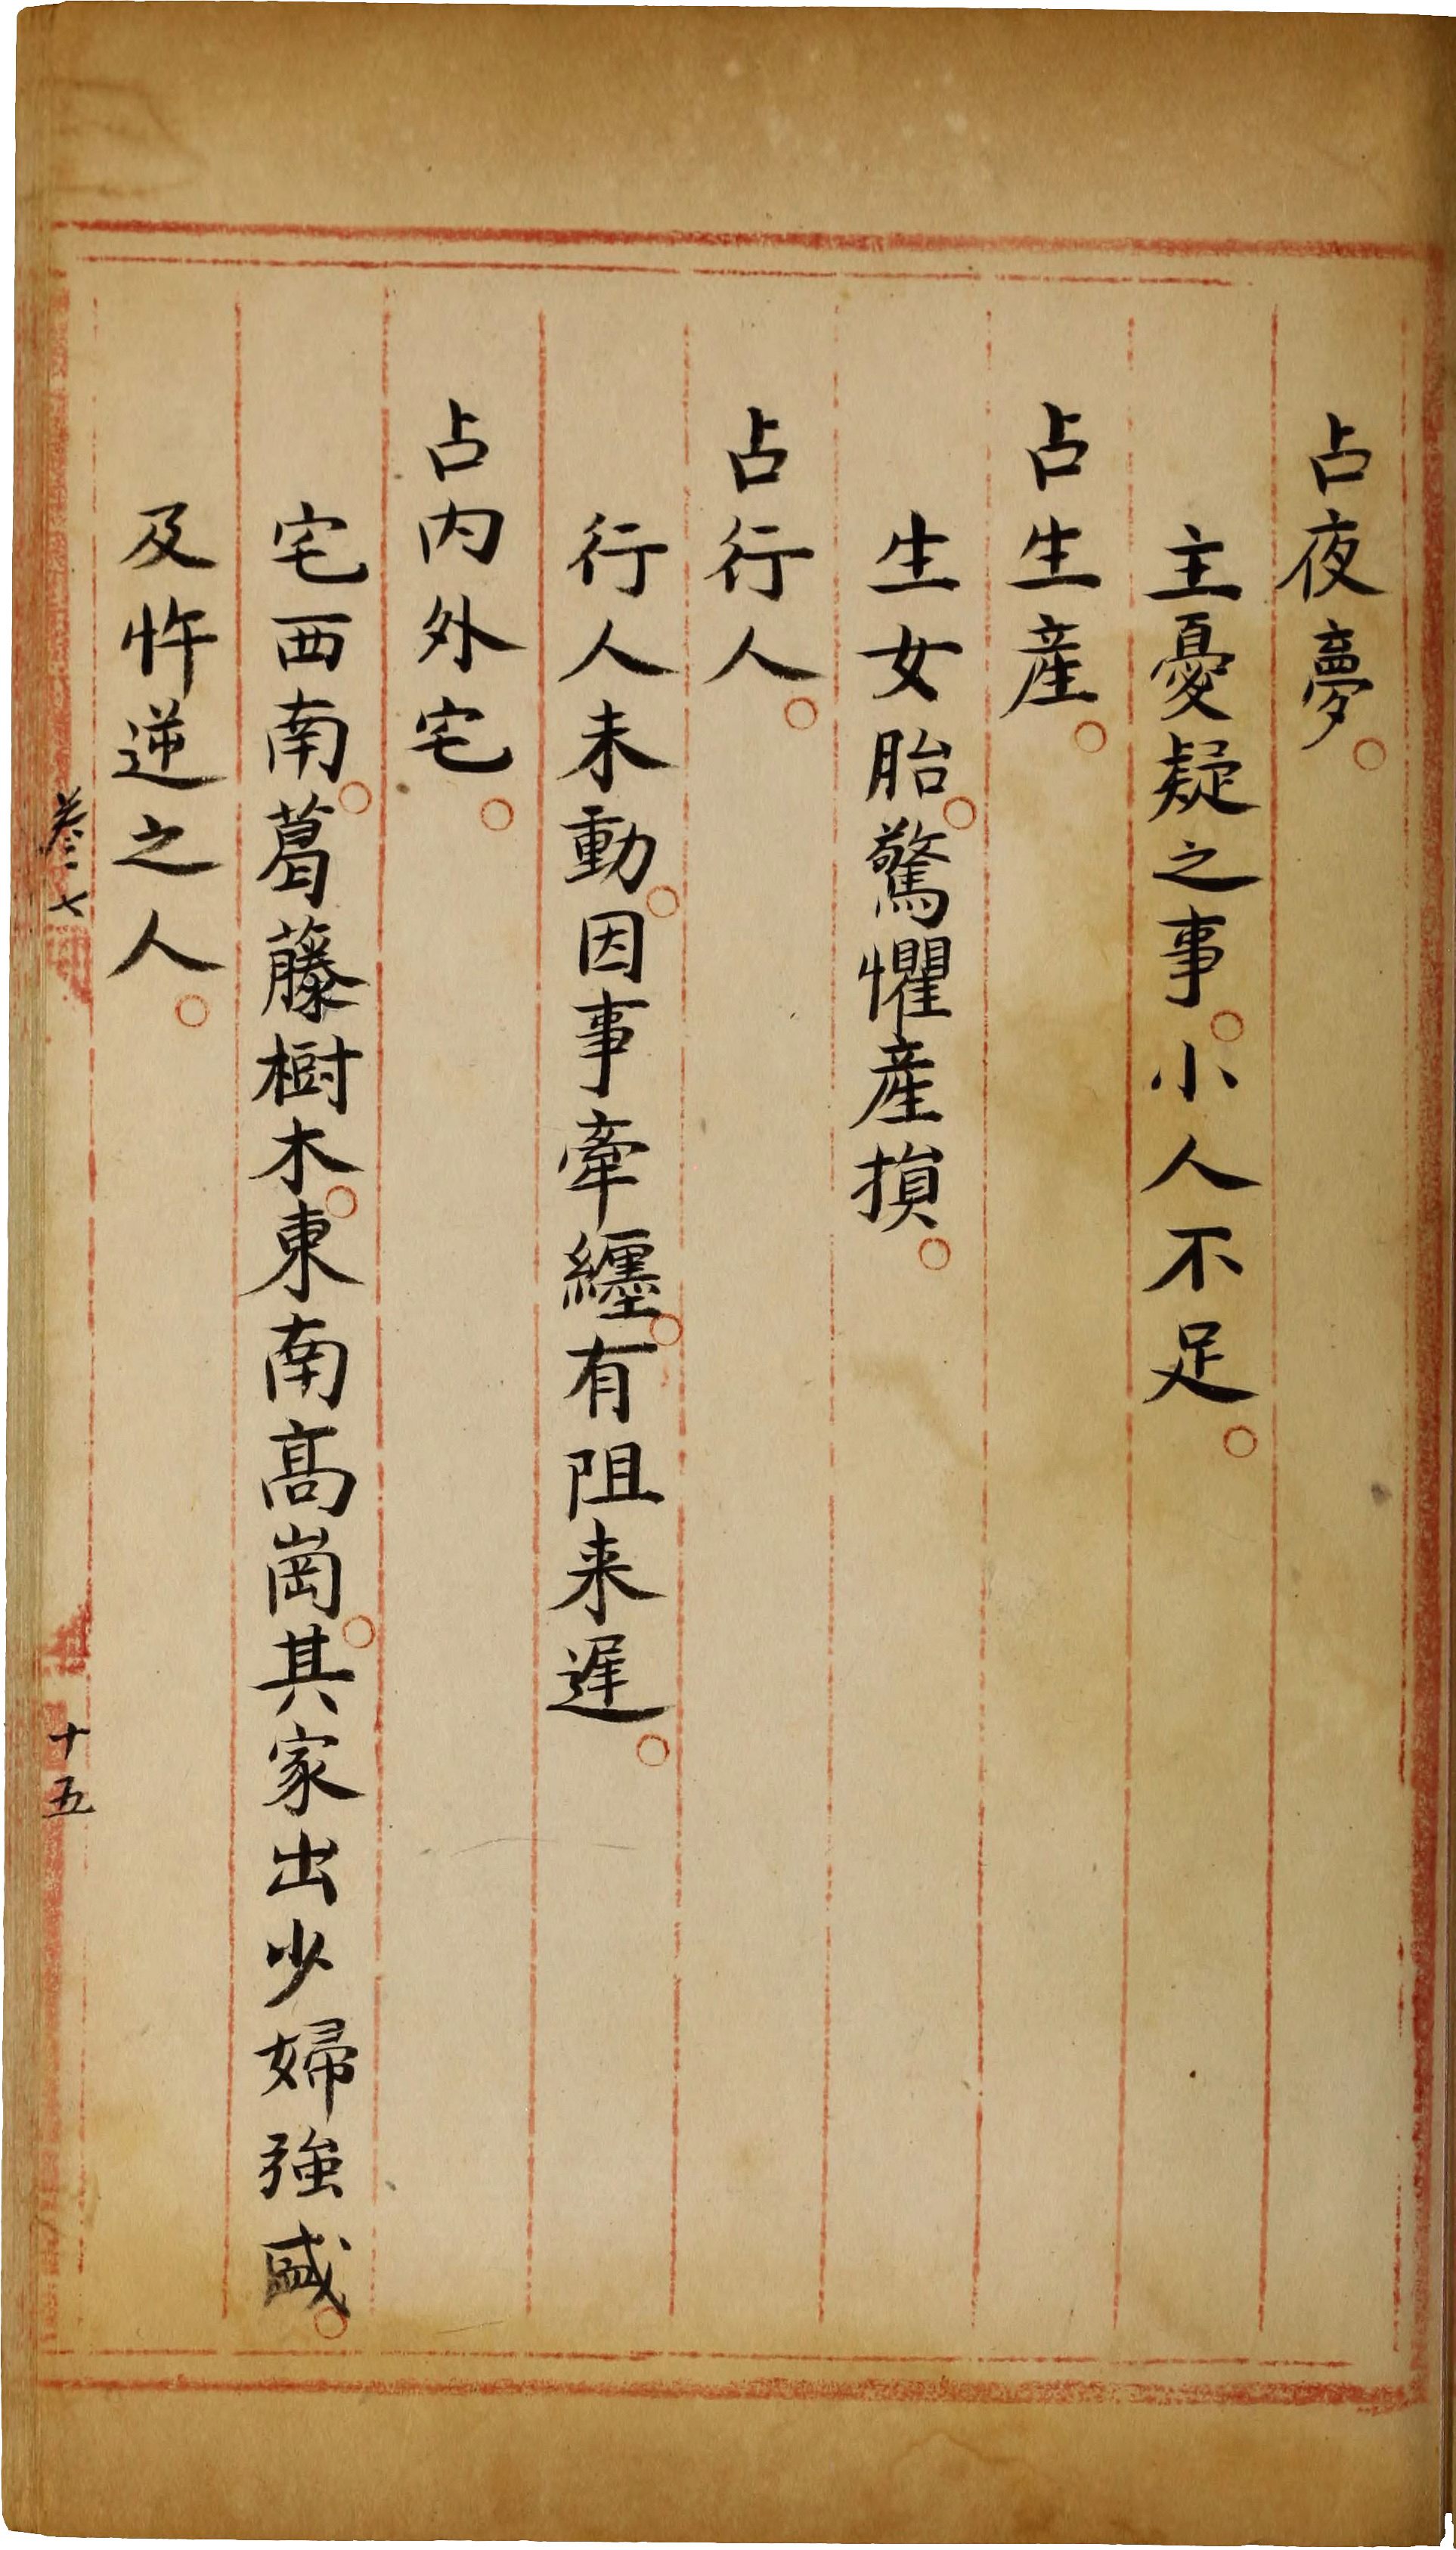 占夜夢。
主憂疑之事。小人不足。
占生産。
生女胎。驚懼産損。
占行人。
行人未動。因事牽纏。有阻来遲。
占内外宅。
宅西南。葛藤樹木。東南高崗。其家出少婦強盛。
及忤逆之人。
十五